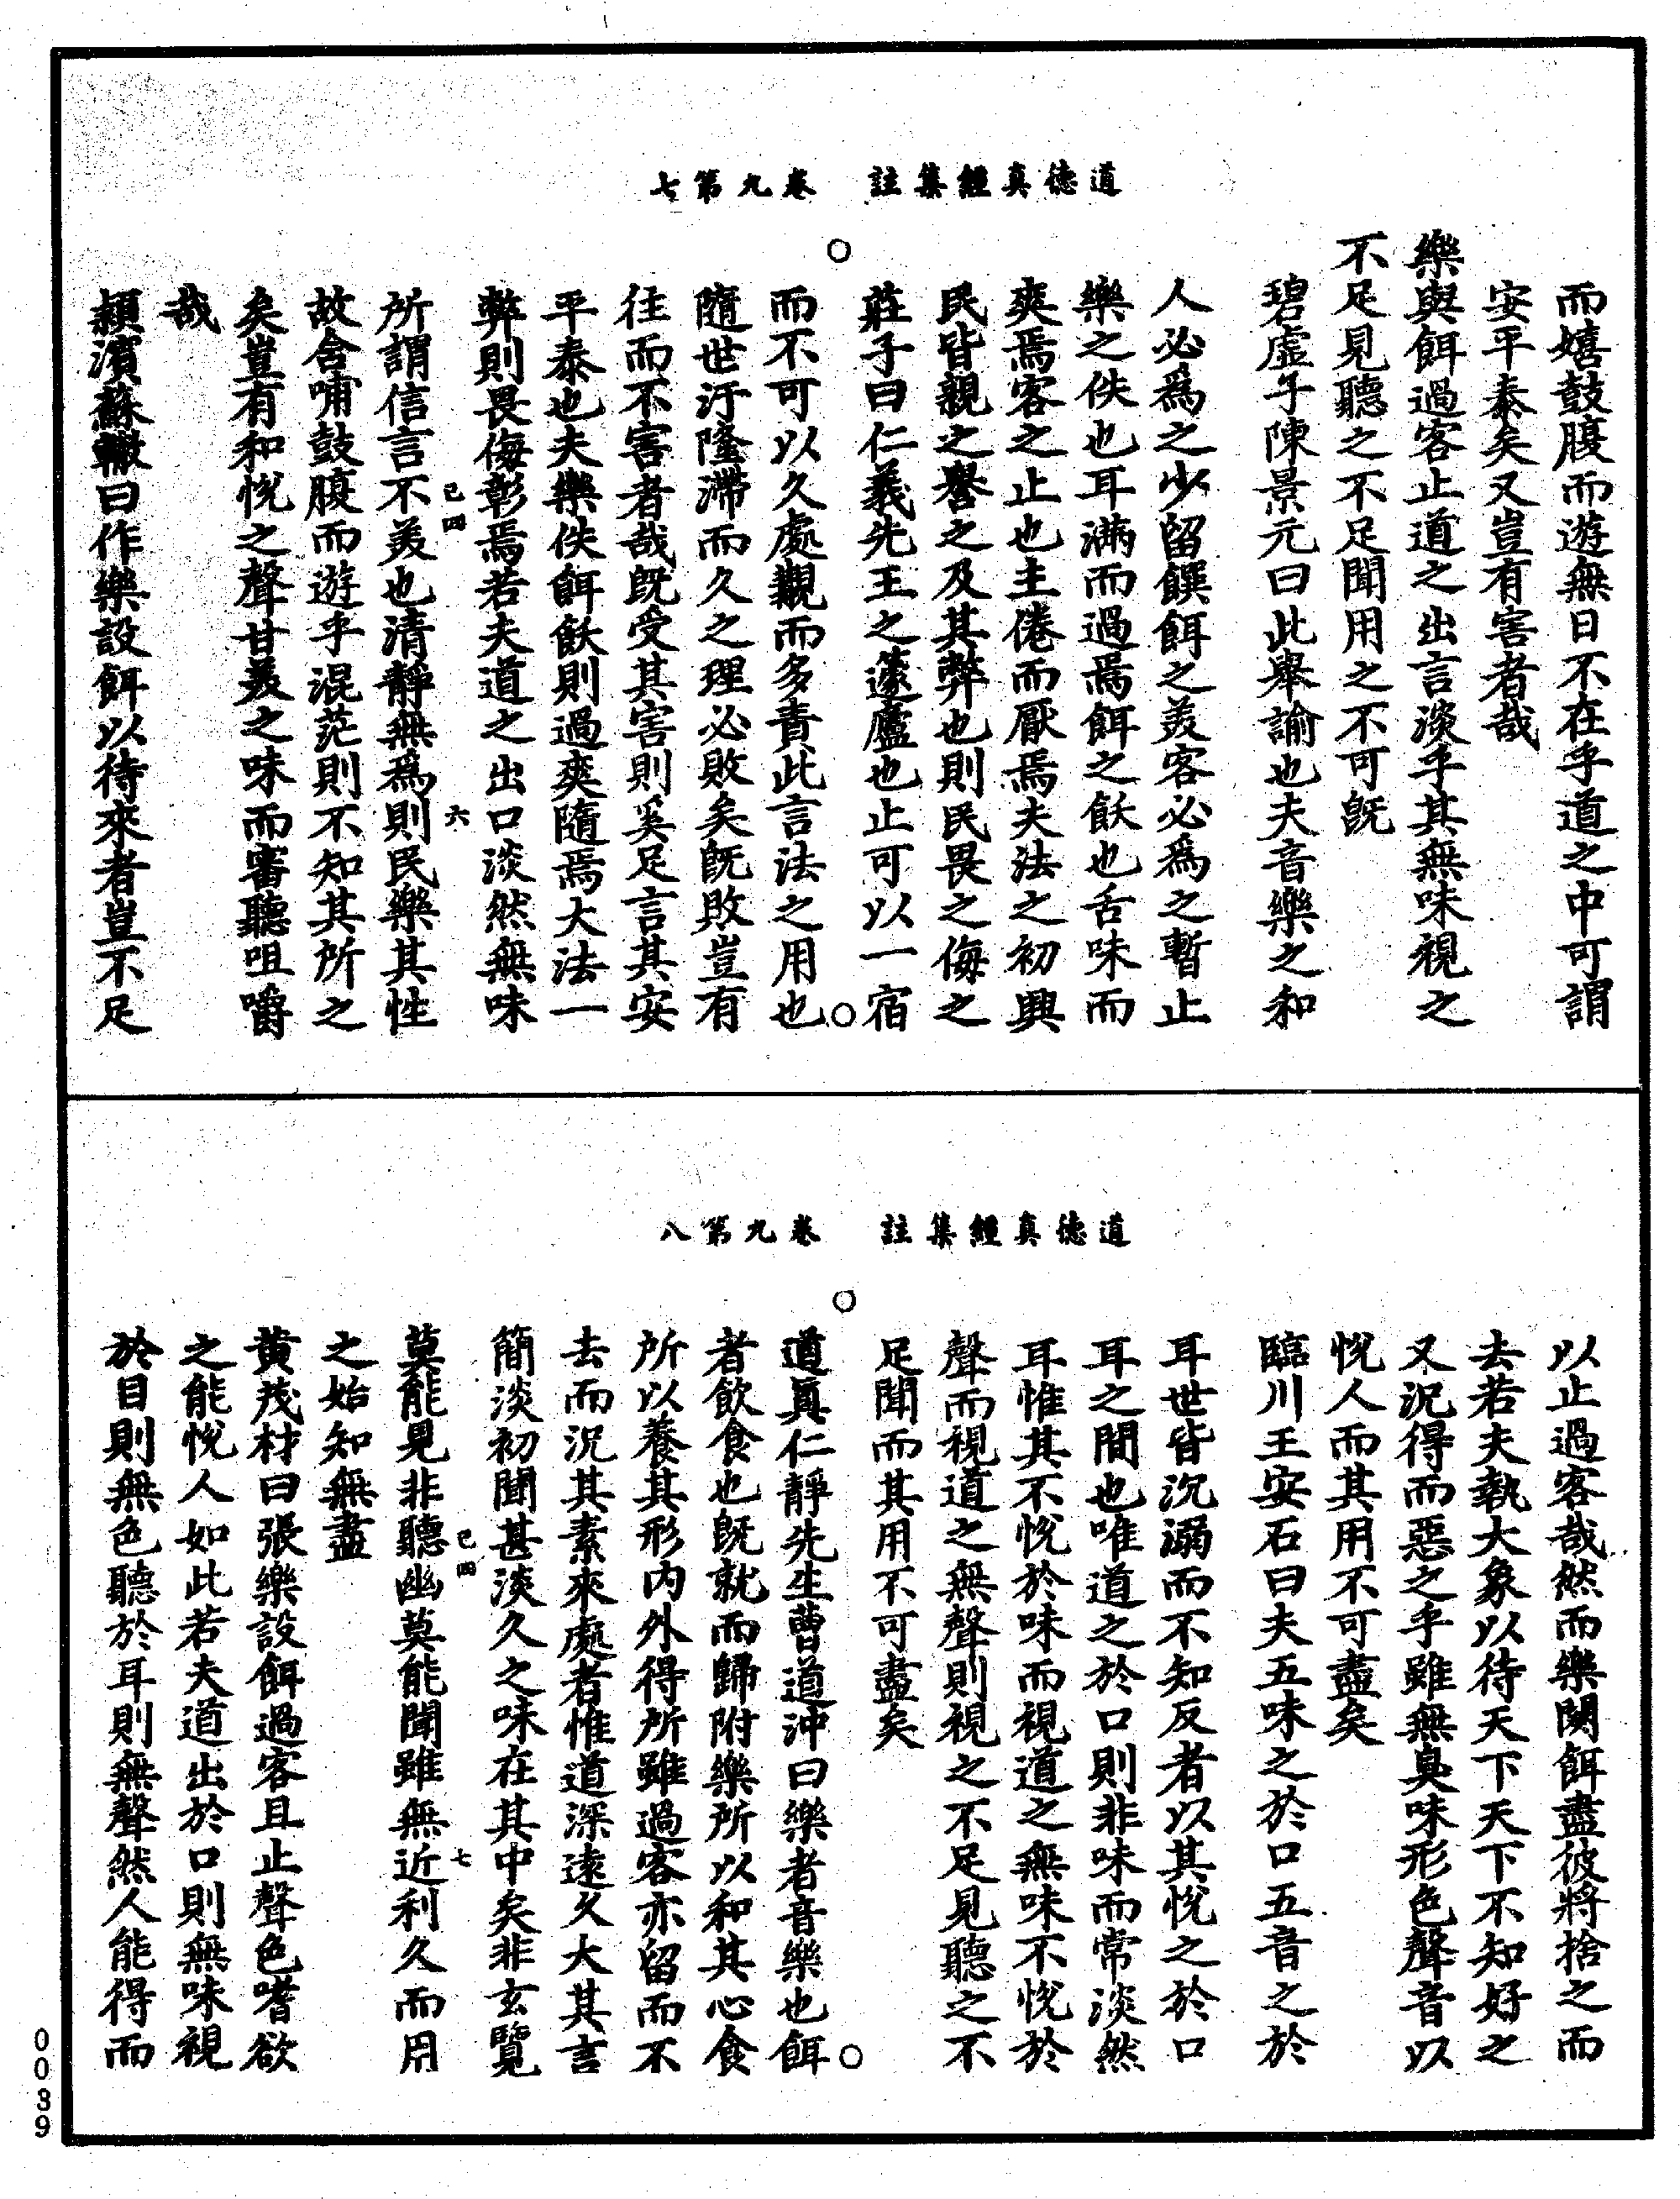 道德真經集註　卷九第七
而嬉鼓腹而遊無日不在乎道之中可謂
安平泰矣又豈有害者哉
樂與餌過客止道之出言淡乎其無味視之
不足見聽之不足聞用之不可旣
碧虛子陳景元曰此舉諭也夫音樂之和
人必爲之少留饌餌之美客必爲之暫止
樂之佚也耳滿而過焉餌之飫也舌味而
爽焉客之止也主倦而厭焉夫法之初興
民皆親之譽之及其弊也則民畏之侮之
莊子曰仁義先王之蘧廬也止可以一宿
而不可以久處觀而多責此言法之用也
隨世汙隆滯而久之理必敗矣旣敗豈有
往而不害者哉旣受其害則奚足言其安
平泰也夫樂佚餌飫則過爽隨焉大法一
弊則畏侮彰焉若夫道之出口淡然無味
己四　六
所謂信言不美也清靜無爲則民樂其性
故含哺鼓腹而遊乎混茫則不知其所之
矣豈有和悅之聲甘美之味而審聽咀嚼
哉
潁濱蘇轍曰作樂設餌以待來者豈不足
道德真經集註　卷九第八
以止過客哉然而樂闋餌盡彼將捨之而
去若夫執大象以待天下天下不知好之
又況得而惡之乎雖無臭味形色聲音以
悅人而其用不可盡矣
臨川王安石曰夫五味之於口五音之於
耳世皆沉溺而不知反者以其悅之於口
耳之間也唯道之於口則非味而常淡然
耳惟其不悅於味而視道之無味不悅於
聲而視道之無聲則視之不足見聽之不
足聞而其用不可盡矣
道真仁靜先生曹道沖曰樂者音樂也餌
者飲食也旣就而歸附樂所以和其心食
所以養其形內外得所雖過客亦留而不
去而況其素來處者惟道深遠久大其言
簡淡初聞甚淡久之味在其中矣非玄覽
己四　七
莫能見非聽幽莫能聞雖無近利久而用
之始知無盡
黃茂材曰張樂設餌過客且止聲色嗜欲
之能悅人如此若夫道出於口則無味視
於目則無色聽於耳則無聲然人能得而
0039